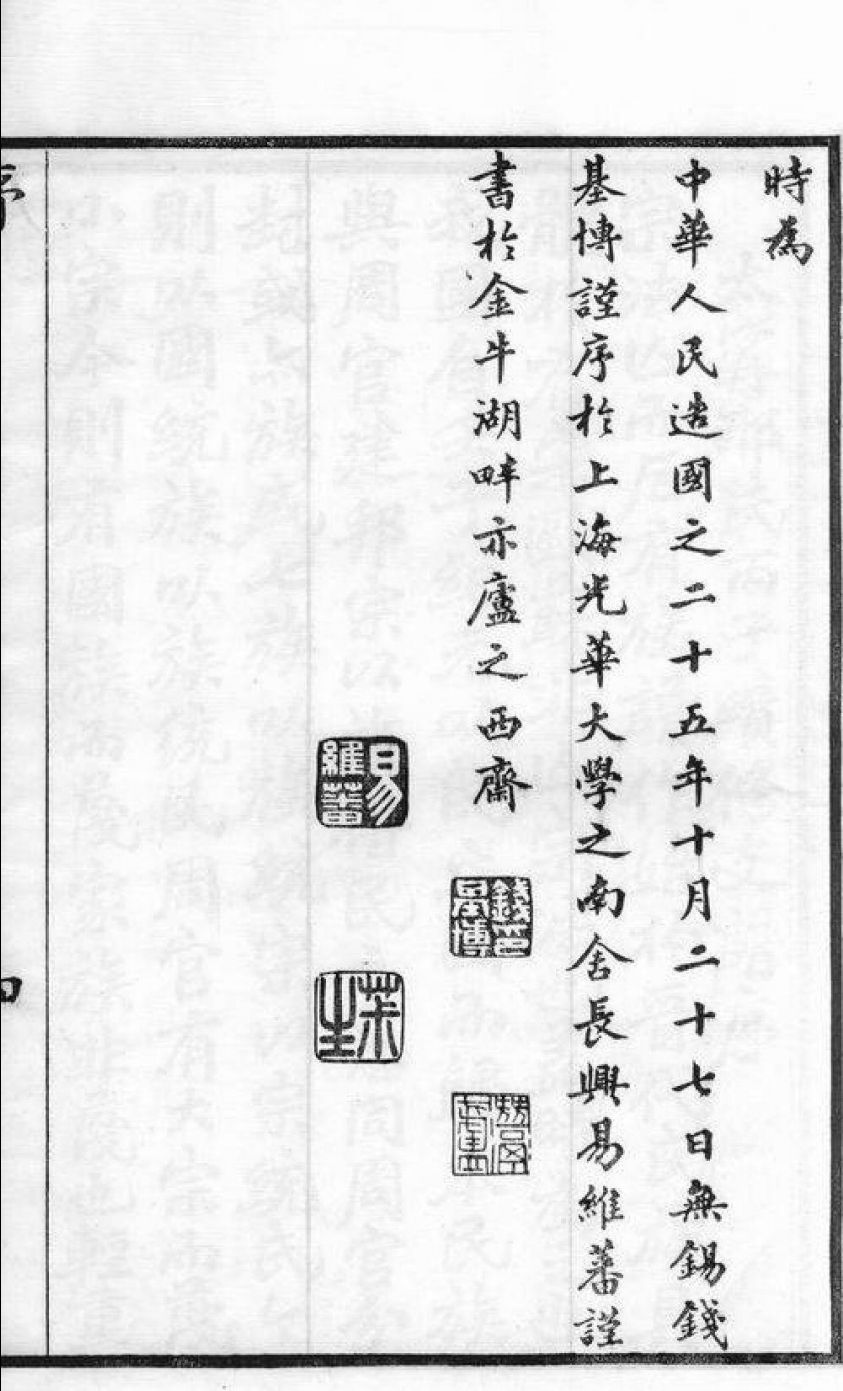 時為
中華人民造國之二十五年十月二十七日無錫錢
基博謹序於上海光華大學之南舍長興易維蕃謹
書於金牛湖畔亦廬之西齋
錢基博印
易維蕃
序
四